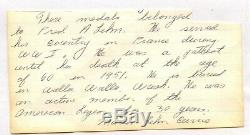 These medals belonged
to Fred A. Lohm. He served
his country in France during
WWI. He was a
until his death at the age
of 60 in 1951. He is buried
in Walla Walla, Wash. He was
an active member of the
American Legion 30 years.
John Currie